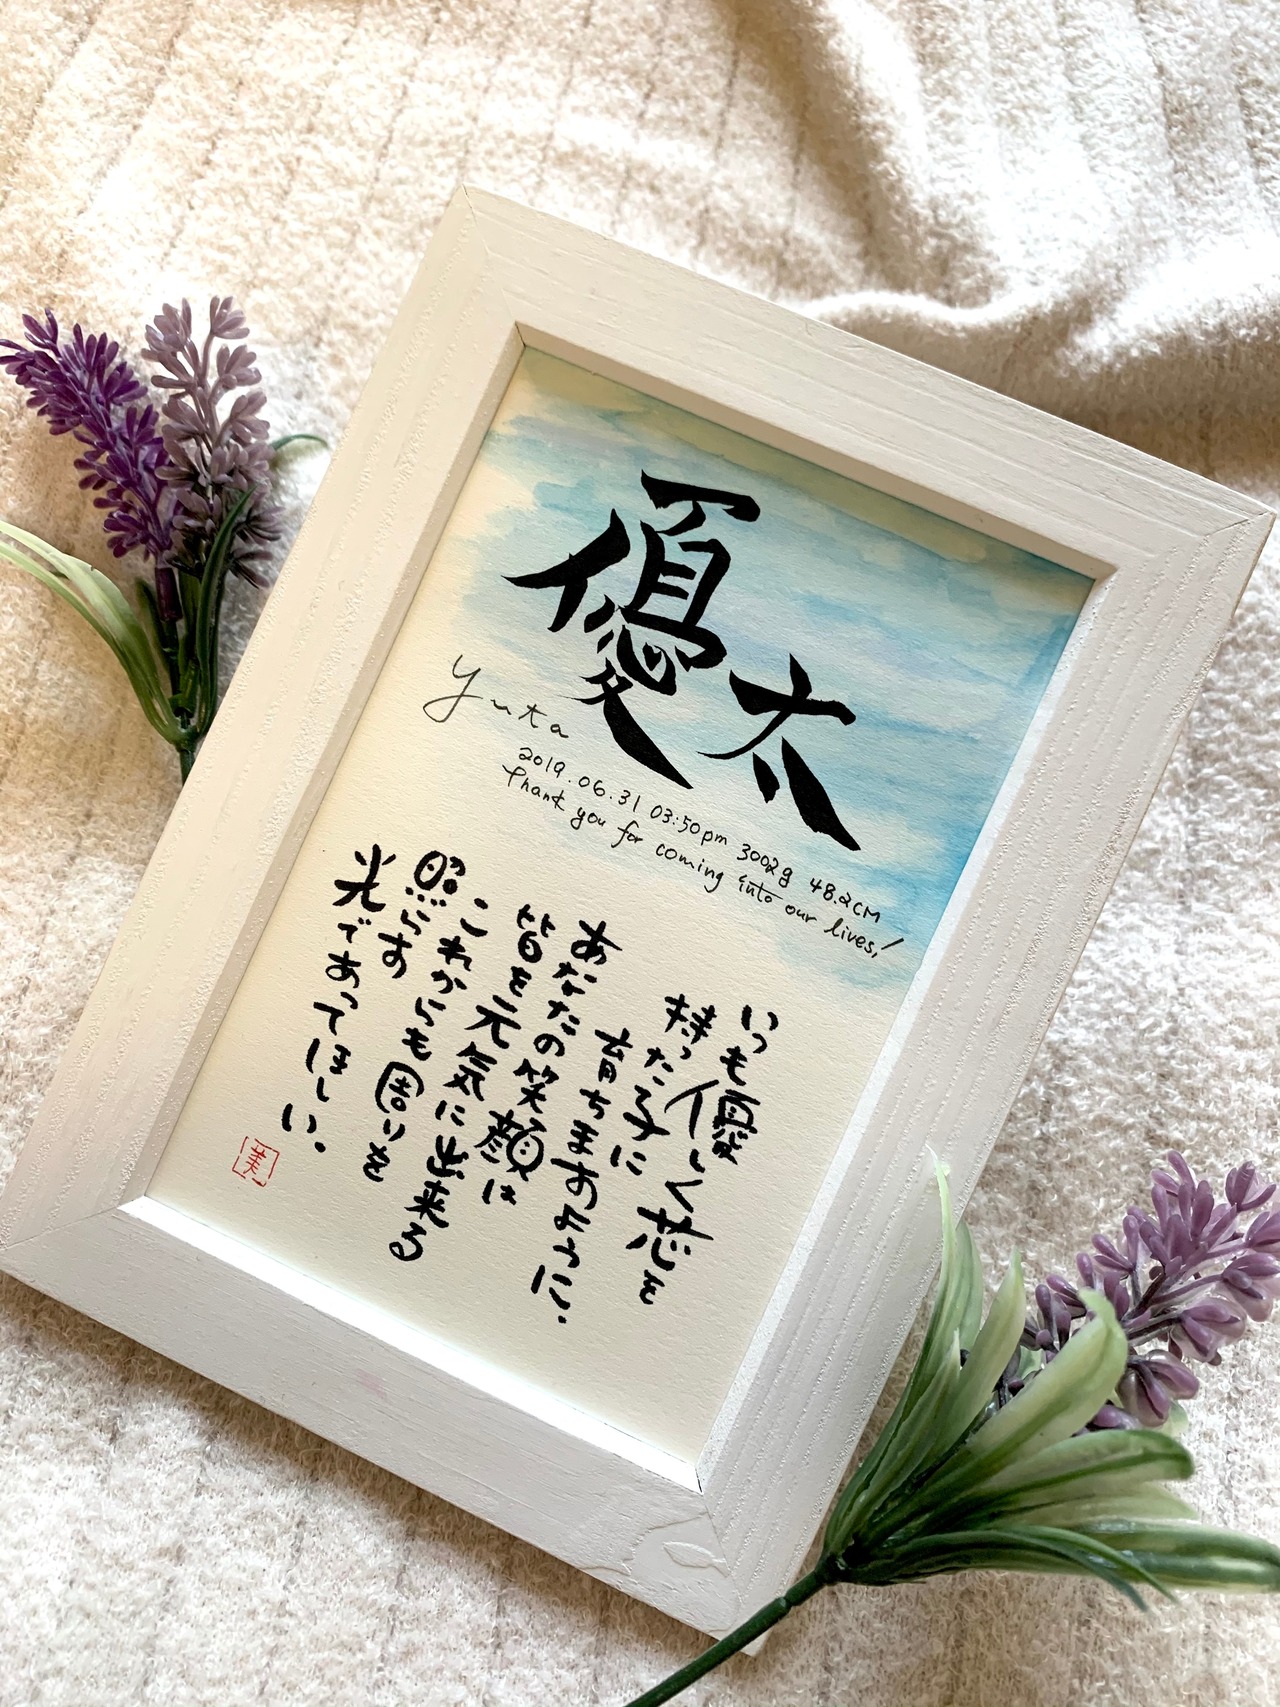 優太
yuta
2019.06.31 03:50pm 3002g 48.2CM
Thank you for coming into our lives!
いつも優しく芯を
持った子に
育ちますように.
あなたの笑顔は
皆を元気に出来る
これからも周りを
照らす
光であってほしい.
美